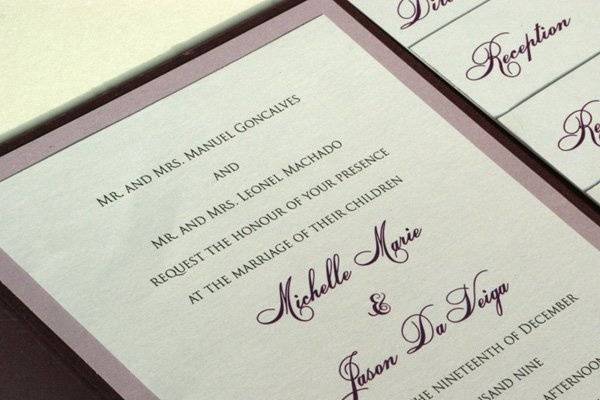 Mr. and Mrs. Manuel Goncalves
and
Mr. and Mrs. Leonel Machado
request the honour of your presence
at the marriage of their children
Michelle Marie
&
Jason Da Veiga
the nineteenth of December
nine
afternoon
Reception